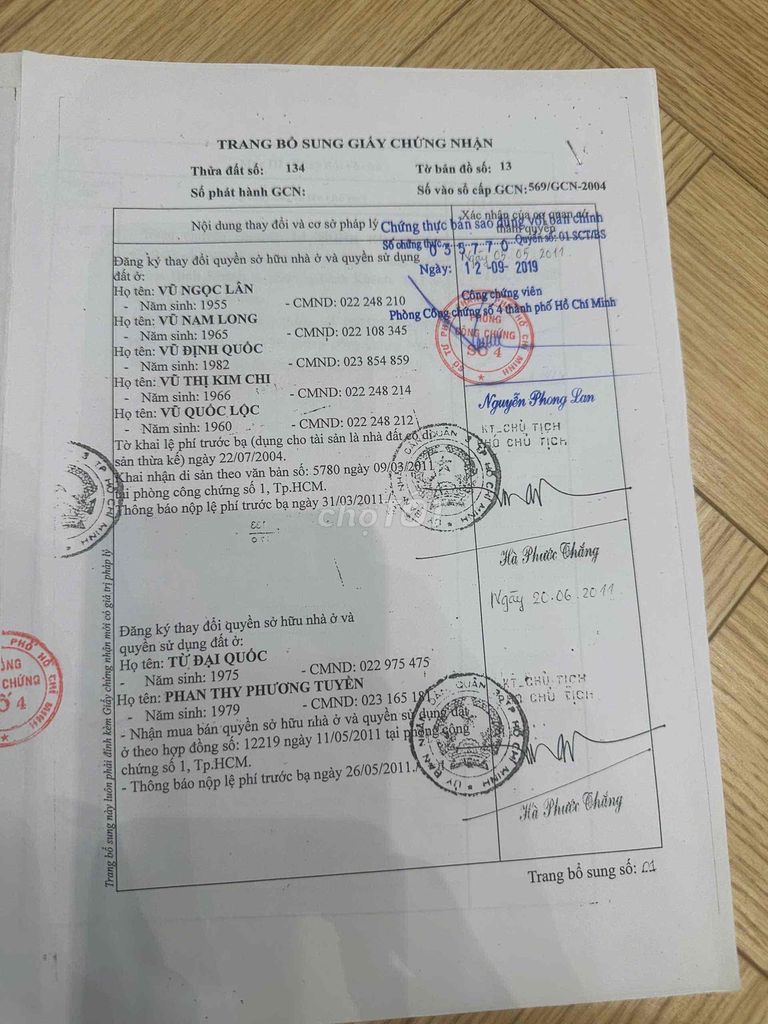 TRANG BỔ SUNG GIẤY CHỨNG NHẬN
Thửa đất số: 134
Tờ bản đồ số: 13
Số phát hành GCN:
Số vào sổ cấp GCN: 569/GCN-2004
Nội dung thay đổi và cơ sở pháp lý
Xác nhận của cơ quan có thẩm quyền
Chứng thực bản sao đúng với bản chính
Số chứng thực 035770 Quyển số: 01 SCT/BS
Ngày 05.05.2011
Ngày: 12-09-2019
Công chứng viên
Phòng Công chứng số 4 thành phố Hồ Chí Minh
PHÒNG
CÔNG CHỨNG
SỐ 4
Nguyễn Phong Lan
Đăng ký thay đổi quyền sở hữu nhà ở và quyền sử dụng
đất ở:
Họ tên: VŨ NGỌC LÂN
- Năm sinh: 1955 - CMND: 022 248 210
Họ tên: VŨ NAM LONG
- Năm sinh: 1965 - CMND: 022 108 345
Họ tên: VŨ ĐỊNH QUỐC
- Năm sinh: 1982 - CMND: 023 854 859
Họ tên: VŨ THỊ KIM CHI
- Năm sinh: 1966 - CMND: 022 248 214
Họ tên: VŨ QUỐC LỘC
- Năm sinh: 1960 - CMND: 022 248 212
Tờ khai lệ phí trước bạ (dụng cho tài sản là nhà đất có di
sản thừa kế) ngày 22/07/2004.
Khai nhận di sản theo văn bản số: 5780 ngày 09/03/2011
tại phòng công chứng số 1, Tp.HCM.
Thông báo nộp lệ phí trước bạ ngày 31/03/2011./.
KT.CHỦ TỊCH
PHÓ CHỦ TỊCH
Hà Phước Thắng
chợTỐT
Ngày 20.06.2011
Đăng ký thay đổi quyền sở hữu nhà ở và
quyền sử dụng đất ở:
Họ tên: TỪ ĐẠI QUỐC
- Năm sinh: 1975 - CMND: 022 975 475
Họ tên: PHAN THY PHƯƠNG TUYỀN
- Năm sinh: 1979 - CMND: 023 165 181
- Nhận mua bán quyền sở hữu nhà ở và quyền sử dụng đất
ở theo hợp đồng số: 12219 ngày 11/05/2011 tại phòng công
chứng số 1, Tp.HCM.
- Thông báo nộp lệ phí trước bạ ngày 26/05/2011./.
KT.CHỦ TỊCH
PHÓ CHỦ TỊCH
Hà Phước Thắng
Trang bổ sung này luôn phải đính kèm Giấy chứng nhận mới có giá trị pháp lý
Trang bổ sung số: 01